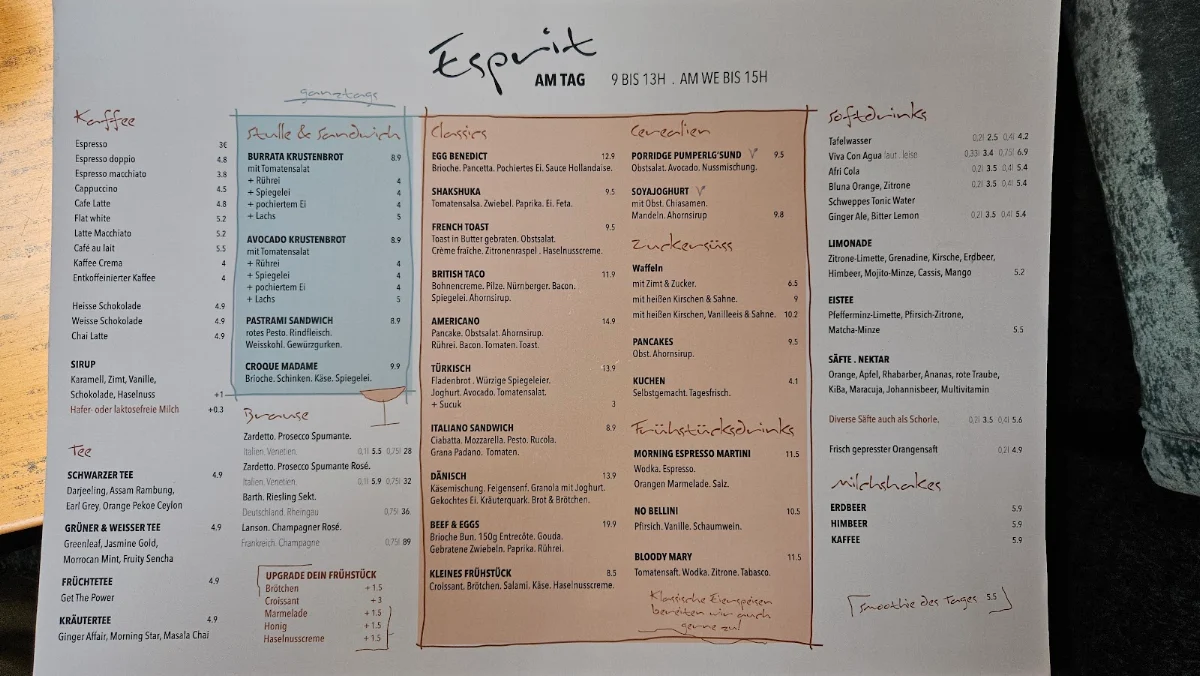 Esprit
AM TAG 9 BIS 13H . AM WE BIS 15H
Kaffee
Espresso 3€
Espresso doppio 4.8
Espresso macchiato 3.8
Cappuccino 4.5
Cafe Latte 4.8
Flat white 5.2
Latte Macchiato 5.2
Café au lait 5.5
Kaffee Crema 4
Entkoffeinierter Kaffee 4
Heisse Schokolade 4.9
Weisse Schokolade 4.9
Chai Latte 4.9
SIRUP
Karamell, Zimt, Vanille,
Schokolade, Haselnuss +1
Hafer- oder laktosefreie Milch +0.3
Tee
SCHWARZER TEE 4.9
Darjeeling, Assam Rambung,
Earl Grey, Orange Pekoe Ceylon
GRÜNER & WEISSER TEE 4.9
Greenleaf, Jasmine Gold,
Morrocan Mint, Fruity Sencha
FRÜCHTETEE 4.9
Get The Power
KRÄUTERTEE 4.9
Ginger Affair, Morning Star, Masala Chai
ganztags
Stulle & Sandwich
BURRATA KRUSTENBROT 8.9
mit Tomatensalat
+ Rührei 4
+ Spiegelei 4
+ pochiertem Ei 4
+ Lachs 5
AVOCADO KRUSTENBROT 8.9
mit Tomatensalat
+ Rührei 4
+ Spiegelei 4
+ pochiertem Ei 4
+ Lachs 5
PASTRAMI SANDWICH 8.9
rotes Pesto. Rindfleisch.
Weisskohl. Gewürzgurken.
CROQUE MADAME 9.9
Brioche. Schinken. Käse. Spiegelei.
Brause
Zardetto. Prosecco Spumante.
Italien. Venetien. 0,1l 5.5 0,75l 28
Zardetto. Prosecco Spumante Rosé.
Italien. Venetien. 0,1l 5.9 0,75l 32
Barth. Riesling Sekt.
Deutschland. Rheingau 0,75l 36
Lanson. Champagner Rosé.
Frankreich. Champagne 0,75l 89
UPGRADE DEIN FRÜHSTÜCK
Brötchen + 1.5
Croissant + 3
Marmelade + 1.5
Honig + 1.5
Haselnusscreme + 1.5
Classics
EGG BENEDICT 12.9
Brioche. Pancetta. Pochiertes Ei. Sauce Hollandaise.
SHAKSHUKA 9.5
Tomatensalsa. Zwiebel. Paprika. Ei. Feta.
FRENCH TOAST 9.5
Toast in Butter gebraten. Obstsalat.
Crème fraîche. Zitronenraspel . Haselnusscreme.
BRITISH TACO 11.9
Bohnencreme. Pilze. Nürnberger. Bacon.
Spiegelei. Ahornsirup.
AMERICANO 14.9
Pancake. Obstsalat. Ahornsirup.
Rührei. Bacon. Tomaten. Toast.
TÜRKISCH 13.9
Fladenbrot . Würzige Spiegeleier.
Joghurt. Avocado. Tomatensalat.
+ Sucuk 3
ITALIANO SANDWICH 8.9
Ciabatta. Mozzarella. Pesto. Rucola.
Grana Padano. Tomaten.
DÄNISCH 13.9
Käsemischung. Feigensenf. Granola mit Joghurt.
Gekochtes Ei. Kräuterquark. Brot & Brötchen.
BEEF & EGGS 19.9
Brioche Bun. 150g Entrecôte. Gouda.
Gebratene Zwiebeln. Paprika. Rührei.
KLEINES FRÜHSTÜCK 8.5
Croissant. Brötchen. Salami. Käse. Haselnusscreme.
Cerealien
PORRIDGE PUMPERLG'SUND V 9.5
Obstsalat. Avocado. Nussmischung.
SOYAJOGHURT V
mit Obst. Chiasamen.
Mandeln. Ahornsirup 9.8
Zuckersüss
Waffeln
mit Zimt & Zucker. 6.5
mit heißen Kirschen & Sahne. 9
mit heißen Kirschen, Vanilleeis & Sahne. 10.2
PANCAKES 9.5
Obst. Ahornsirup.
KUCHEN 4.1
Selbstgemacht. Tagesfrisch.
Frühstücksdrinks
MORNING ESPRESSO MARTINI 11.5
Wodka. Espresso.
Orangen Marmelade. Salz.
NO BELLINI 10.5
Pfirsich. Vanille. Schaumwein.
BLOODY MARY 11.5
Tomatensaft. Wodka. Zitrone. Tabasco.
Klassische Eierspeisen
bereiten wir auch
gerne zu!
Softdrinks
Tafelwasser 0,2l 2.5 0,4l 4.2
Viva Con Agua laut . leise 0,33l 3.4 0,75l 6.9
Afri Cola 0,2l 3.5 0,4l 5.4
Bluna Orange, Zitrone 0,2l 3.5 0,4l 5.4
Schweppes Tonic Water
Ginger Ale, Bitter Lemon 0,2l 3.5 0,4l 5.4
LIMONADE
Zitrone-Limette, Grenadine, Kirsche, Erdbeer,
Himbeer, Mojito-Minze, Cassis, Mango 5.2
EISTEE
Pfefferminz-Limette, Pfirsich-Zitrone,
Matcha-Minze 5.5
SÄFTE . NEKTAR
Orange, Apfel, Rhabarber, Ananas, rote Traube,
KiBa, Maracuja, Johannisbeer, Multivitamin
Diverse Säfte auch als Schorle. 0,2l 3.5 0,4l 5.6
Frisch gepresster Orangensaft 0,2l 4.9
Milchshakes
ERDBEER 5.9
HIMBEER 5.9
KAFFEE 5.9
Smoothie des Tages 5.5